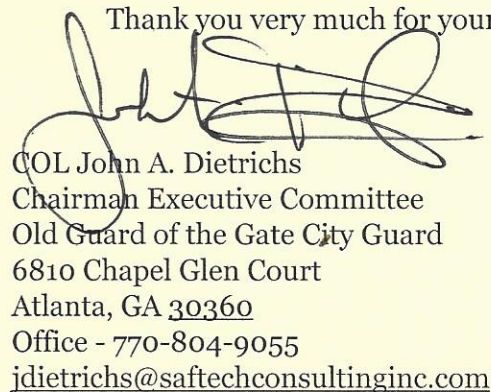 Thank you very much for your
COL John A. Dietrichs
Chairman Executive Committee
Old Guard of the Gate City Guard
6810 Chapel Glen Court
Atlanta, GA 30360
Office - 770-804-9055
jdietrichs@saftechconsultinginc.com